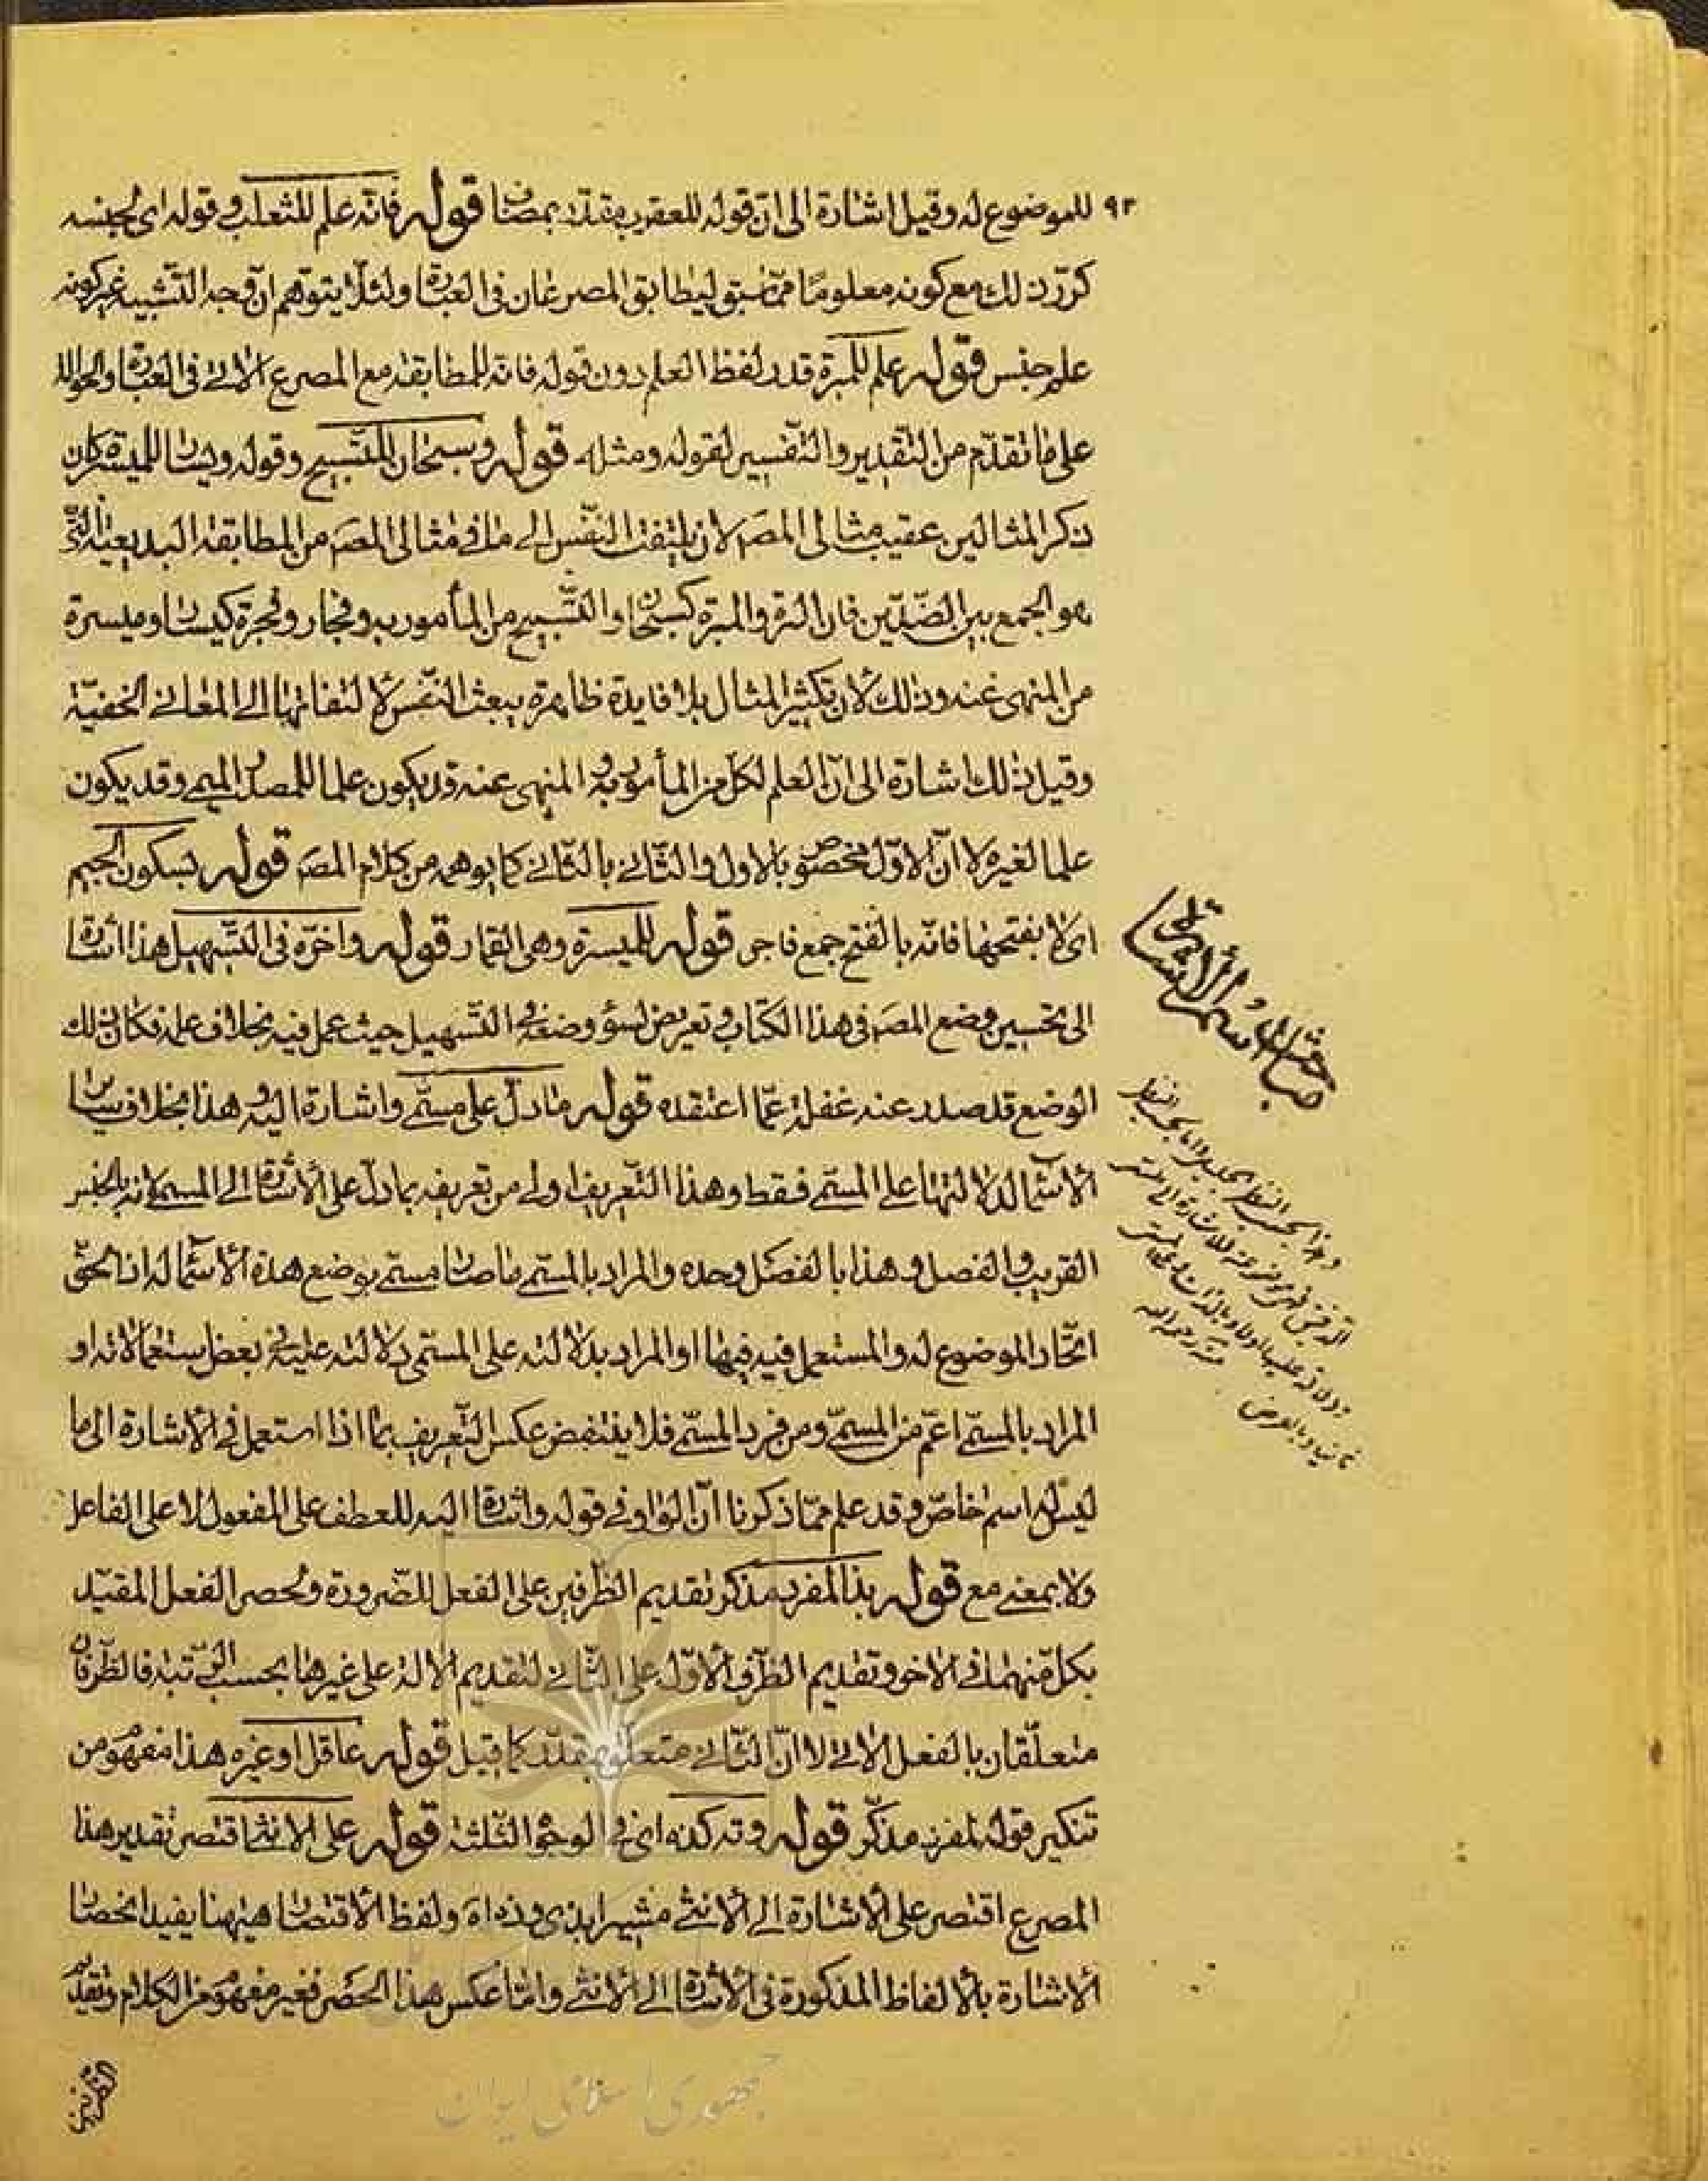 ٩٢ للموضوع له وقيل اشارة الى ان قوله للعقرب متعلق بمضاف قوله فانه علم للثعلب وقوله اى لجنسه
كرّر ذلك مع كونه معلومًا ممّا سبق ليطابق المصرعان فى العبارة ولئلا يتوهم انّ وجه التشبيه غير كونه
علم جنس قوله علم للمبرة قدر لفظ العلم دون قوله فانه للمطابقة مع المصرع الاتى فى العبارة
على ما تقدّم من التقدير والتفسير لقوله ومثله قوله وسبحان للتسبيح وقوله ويسار للميسرة كان
ذكر المثالين عقيب مثالى المصَ لان يلتفت النفس الى ما فى مثالى المصَ من المطابقة البديعيّة التى
هو الجمع بين الضدّين فان البرّة والمبرة كسبحان والتسبيح من المأمور به وفجار وفجرة كيسار وميسرة
من المنهى عنه وذلك لان تكثير المثال بلا فايدة ظاهرة يبعث النفس لالتفاتها الى المعانى الخفيّة
وقيل ذلك اشارة الى انّ العلم لكل من المأمور به و المنهى عنه قد يكون علما للمصدر الميمى وقد يكون
علما لغيره لا انّ الاوّل مخصوص بالاول والثانى بالثانى كما يوهمه من كلام المصَ قوله بسكون الجيم
اى لا بفتحها فانّه بالفتح جمع فاجر قوله للميسرة وهى القمار قوله واخرّه فى التسهيل هذا اشارة
الى تحسين وضع المصَ فى هذا الكتاب وتعريض لسوء وضعه فى التسهيل حيث عمل فيه بخلاف علمه فكان ذلك
الوضع قد صدر عنه غفلة عمّا اعتقده قوله ما دلّ على مسمّى واشارة اليه هذا بخلاف ساير
الاسماء لدلالتها على المسمّى فقط وهذا التعريف اولى من تعريفه بما دلّ على الاشارة الى المسمى لانه بالجنس
القريب والفصل وهذا بالفصل وحده والمراد بالمسمّى ما صار مسمّى بوضع هذه الاسماء له اذ الحقّ
اتّحاد الموضوع له والمستعمل فيه فيها او المراد بدلالته على المسمّى دلالته عليه فى بعض استعمالاته او
المراد بالمسمّى اعمّ من المسمّى ومن فرد المسمّى فلا ينتقض عكس التعريف بما اذا استعمل فى الاشارة الى ما
ليس له اسم خاصّ وقد علم ممّا ذكرنا انّ الواو فى قوله واشارة اليه للعطف على المفعول لا على الفاعل
ولا بمعنى مع قوله بذا لمفرد مذكر تقديم الظرفين على الفعل للضرورة ولحصر الفعل المقيّد
بكل منهما فى الاخر وتقديم الظرف الاوّل على الثانى لتقديم الالة على غيرها بحسب الرتبة فالظرفان
متعلّقان بالفعل الاتى لا انّ الثانى متعلق بمقدّر كما قيل قوله عاقل او غيره هذا مفهوم من
تنكير قوله لمفرد مذكّر قوله وته كذه اى فى الوجوه الثلثة قوله على الانثى اقتصر تقدير هذا
المصرع اقتصر على الاشارة الى الانثى مشيرا بذى وذه اه ولفظ الاقتصار هيهنا يفيد انحصار
الاشارة بالالفاظ المذكورة فى الاشارة الى الانثى وامّا عكس هذا الحصر فغير مفهوم من الكلام وتقديم
الظرفين
مبحث اسم الاشارة
رحمه الله
ثانيا وبالعرض
جمهورى اسلامى ايران